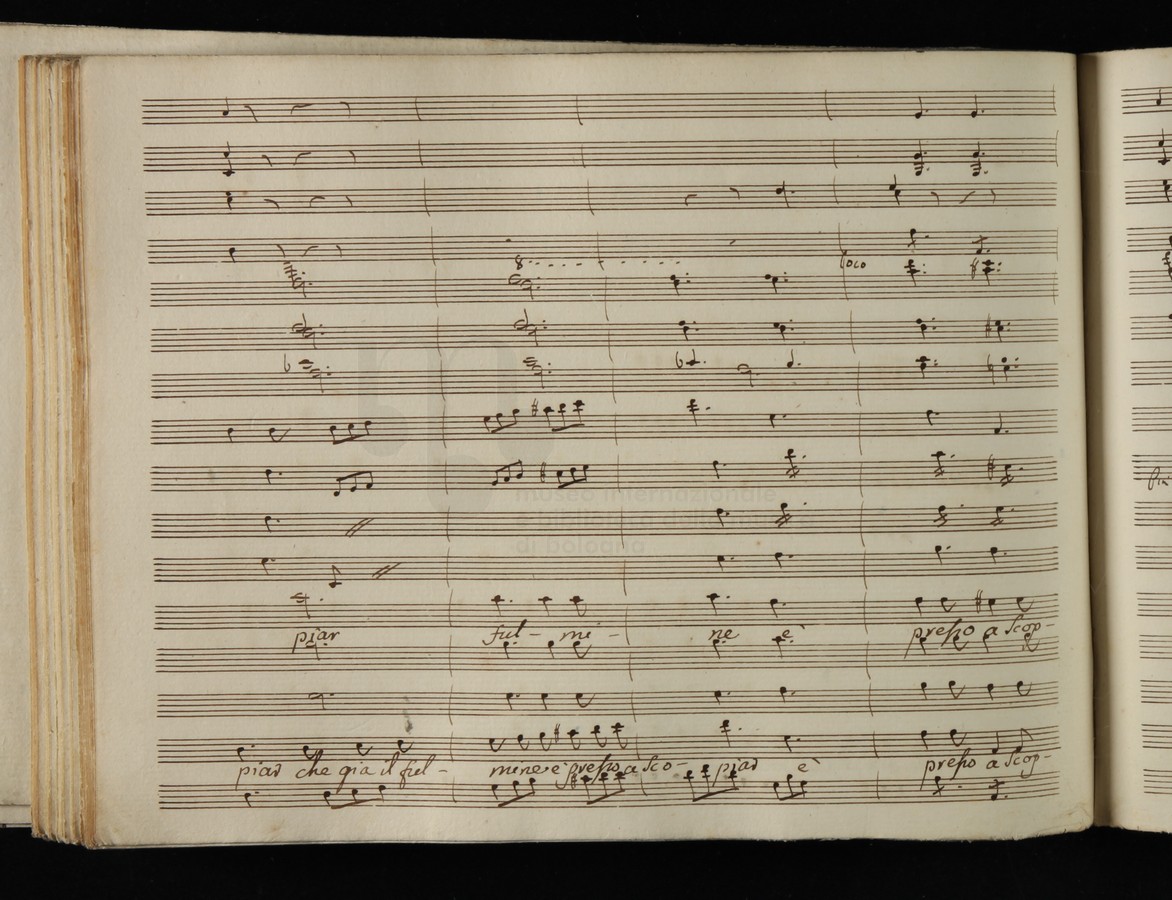 8
loco
museo internazionale
di bologna
piar ful - mi - ne è presso a scop -
piar che gia il ful - mine è presso a sco - piar è presso a scop -